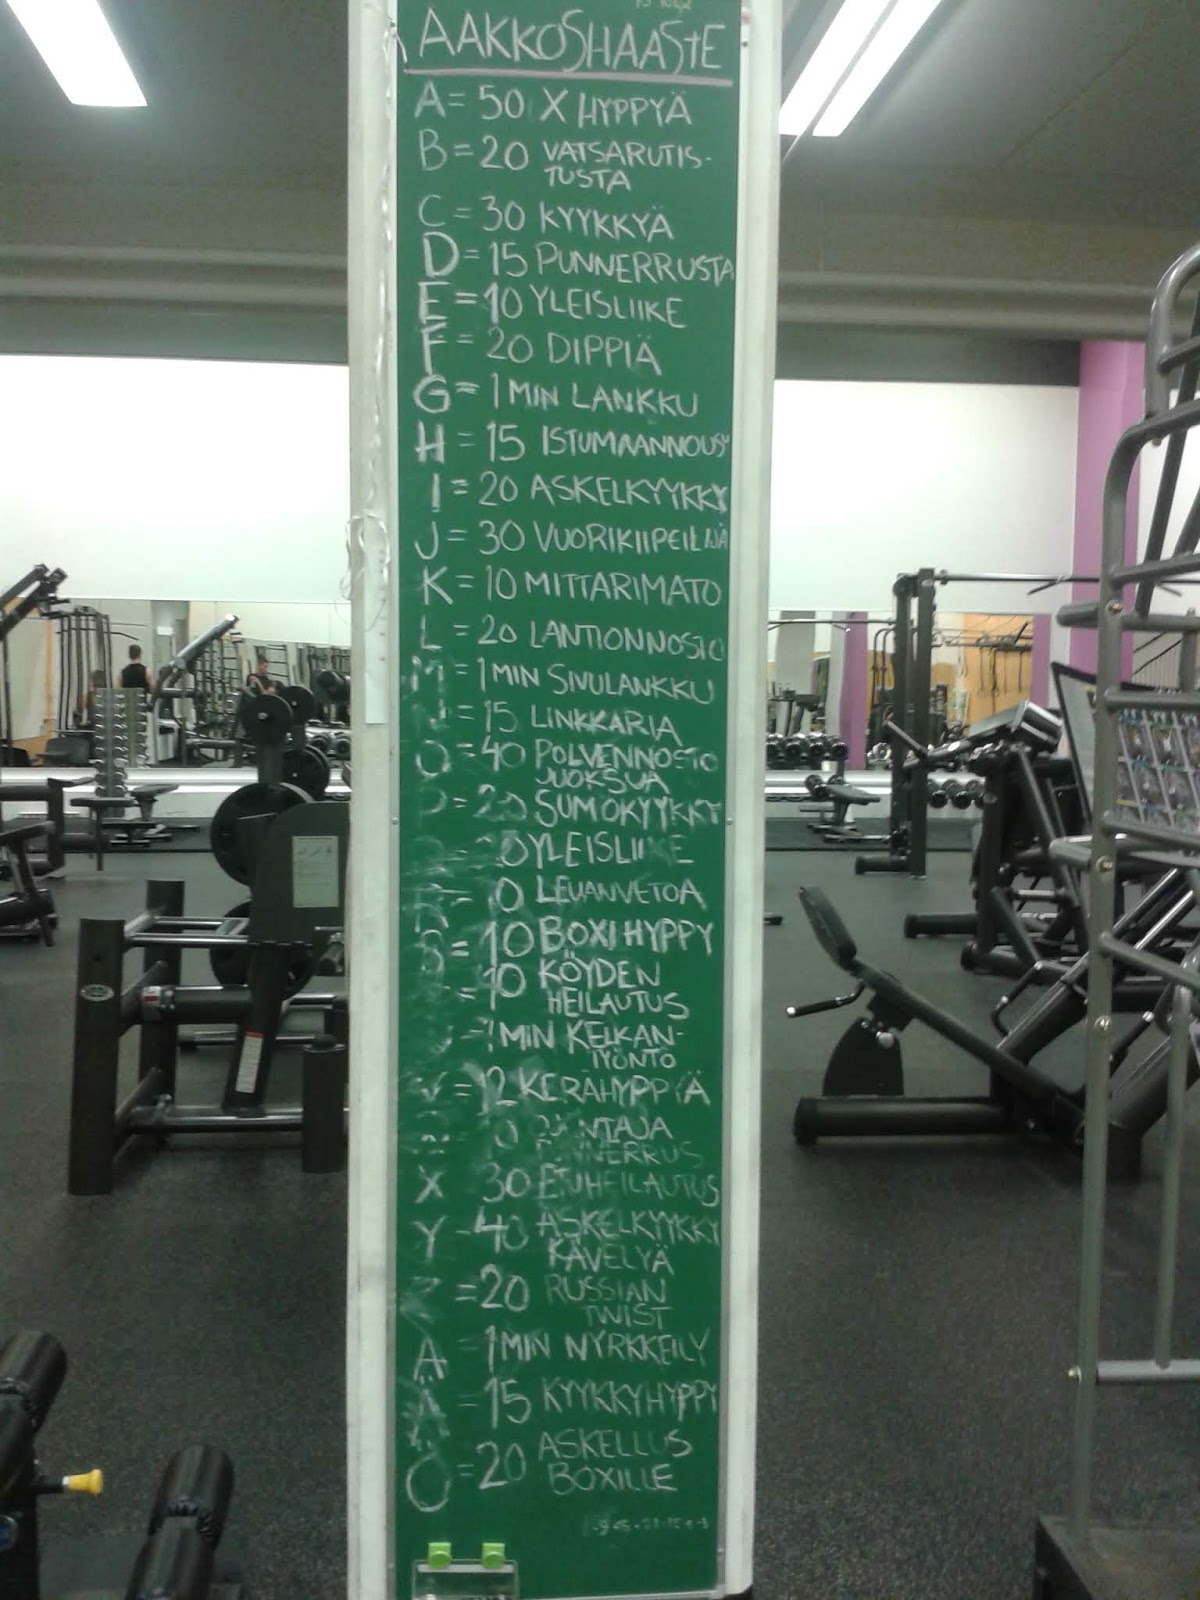 AAKKOSHAASTE
A = 50 X HYPPYÄ
B = 20 VATSARUTIS-
TUSTA
C = 30 KYYKKYÄ
D = 15 PUNNERRUSTA
E = 10 YLEISLIIKE
F = 20 DIPPIÄ
G = 1 MIN LANKKU
H = 15 ISTUMAANNOUSU
I = 20 ASKELKYYKKY
J = 30 VUORIKIIPEILIJÄ
K = 10 MITTARIMATO
L = 20 LANTIONNOSTO
M = 1 MIN SIVULANKKU
N = 15 LINKKARIA
O = 40 POLVENNOSTO
JUOKSUA
P = 20 SUMOKYYKKY
YLEISLIIKE
R = LEUANVETOA
S = 10 BOXI HYPPY
= 10 KÖYDEN
HEILAUTUS
1 MIN KELKAN-
TYÖNTÖ
V = 12 KERÄHYPPYÄ
PUNNERRUS
X 30 ETUHEILAUTUS
Y - 40 ASKELKYYKKY
KÄVELYÄ
Z = 20 RUSSIAN
TWIST
Å = 1 MIN NYRKKEILY
Ä = 15 KYYKKYHYPPY
Ö = 20 ASKELLUS
BOXILLE